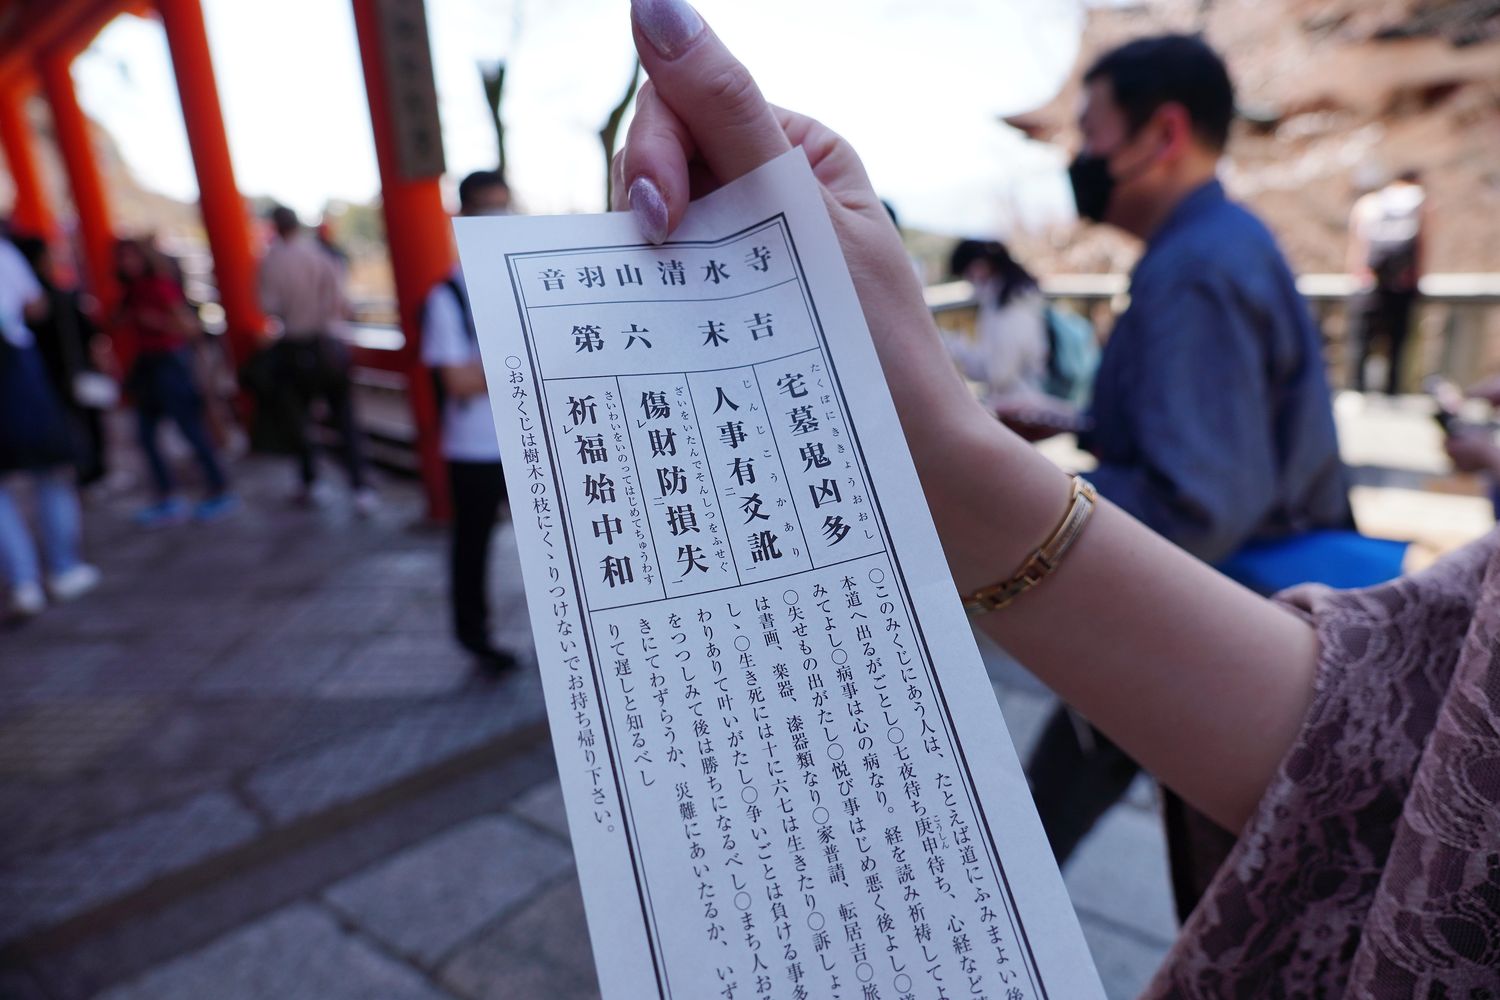 音羽山清水寺
第六 末吉
宅墓鬼凶多
たくぼにききょうおおし
人事有爻訛
じんじこうかあり
傷財防損失
ざいをいたんでそんしつをふせぐ
祈福始中和
さいわいをいのってはじめてちゅうわす
○このみくじにあう人は、たとえば道にふみまよい後
本道へ出るがごとし○七夜待ち庚申待ち、心経など
こうしん
みてよし○病事は心の病なり。経を読み祈祷してよ
○失せもの出がたし○悦び事はじめ悪く後よし○
は書画、楽器、漆器類なり○家普請、転居吉○旅
し、○生き死には十に六七は生きたり○訴しょ
わりありて叶いがたし○争いごとは負ける事多
をつつしみて後は勝ちになるべし○まち人お
きにてわずらうか、災難にあいたるか、いず
りて遅しと知るべし
○おみくじは樹木の枝にくゝりつけないでお持ち帰り下さい。